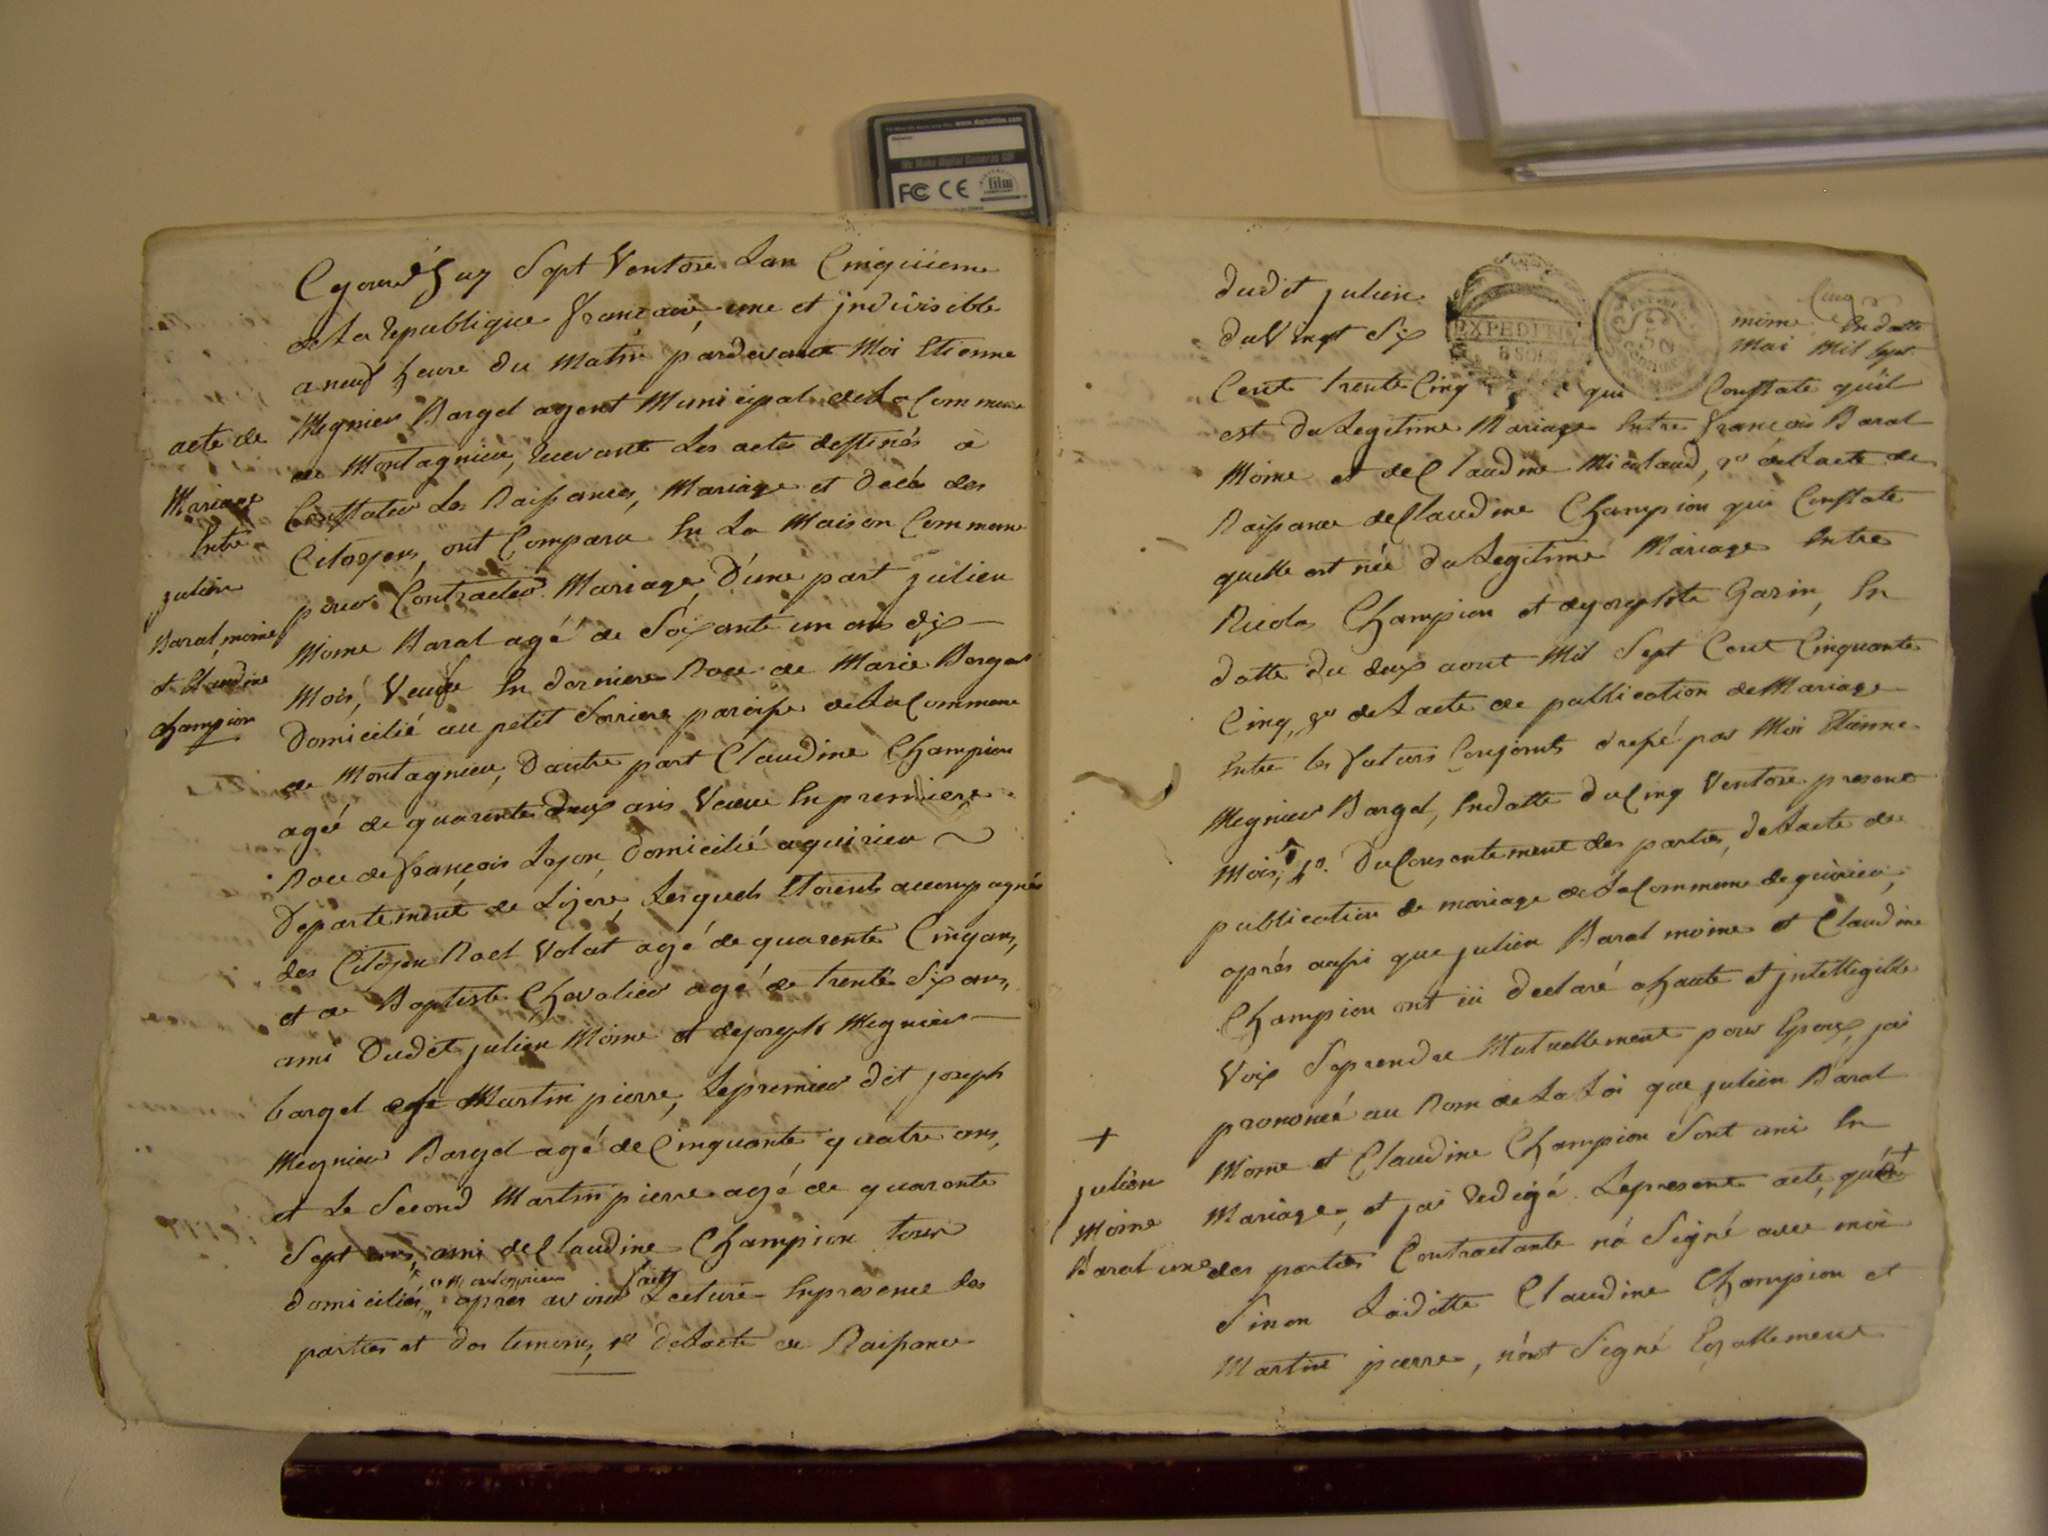 www.digitalfilm.com
We Make Digital Cameras GO!
FC CE
film
acte de
Mariage
Entre
julien
Baral moine
et Claudine
Champion
Cejourd'huy Sept Ventose Lan Cinquieme
de La republique francaise, une et jndivisible
a neuf heure du Matin pardevant Moi Etienne
Megnier Bargel agent Municipal de La Commune
de Montagnieu, recevant Les acte destinés a
Constater Les Naissances, Mariage et Décés des
Citoyens, ont Comparu En La Maison Commune
pour Contracter Mariage, D'une part julien
Moine Baral agé de Soixante un ans dix
Mois, Veuf En derniere Noce de Marie Berger
Domicilié au petit Serriere paroisse de La Commune
de Montagnieu, Dautre part Claudine Champion
agée de quarente deux ans Veuve En premiere
Noce de françois Lejon, domicilié a quirieu
Departement de Lizere, Lesquels Etoients accompagnés
des Citoyen Noel Volat agé de quarente Cinq ans,
et de Baptiste Chevalier agé de trente Six ans,
ami Dudit julien Moine et de joseph Megnier
bargel et Martin pierre, Le premier dit joseph
Megnier Bargel agé de Cinquante quatre ans,
et Le Second Martin pierre agé de quarente
Sept ans, ami de Claudine Champion tous
a Montagnieu fait
domiciliés, après avoir Lecture En presence des
parties et des temoins, 1º de Lacte de Naissance
EXPEDITION
dudit julien moine En datte
du Vingt Six Mai Mil Sept
Cent trente Cinq qui Constate quil
est du Legitime Mariage Entre françois Baral
Moine et de Claudine Michaud, 2º de Lacte de
Naissance de Claudine Champion qui Constate
quelle est née du Legitime Mariage Entre
Nicolas Champion et de josephte Garin, En
datte du deux aout Mil Sept Cent Cinquante
Cinq, 3º de Lacte de publication de Mariage
Entre les futurs Conjoints dressé par Moi Etienne
Megnier Bargel, En datte du Cinq Ventose present
Mois, 4º. Du Consentement des parties, de Lacte de
publication de mariage de La Commune de quirieu,
après aussi que julien Baral moine et Claudine
Champion ont eü declaré a haute et jntelligible
Voix Se prendre Mutuellement pour Epoux, jai
prononcé au Nom de La Loi que julien Baral
Moine et Claudine Champion Sont uni En
Mariage, et jai redigé Le present acte, que +
des parties Contractante na Signé avec moi
Sinon Laditte Claudine Champion et
Martin pierre, n'ont Signé Egallement
+
julien
Moine
Baral une